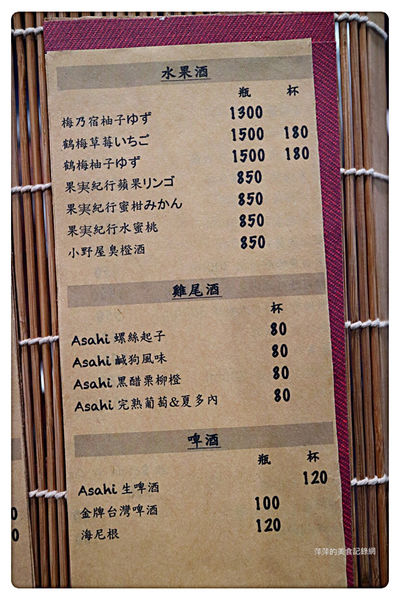 水果酒
瓶 杯
梅乃宿柚子ゆず 1300
鶴梅草莓いちご 1500 180
鶴梅柚子ゆず 1500 180
果実紀行蘋果リンゴ 850
果実紀行蜜柑みかん 850
果実紀行水蜜桃 850
小野屋臭橙酒 850
雞尾酒
杯
Asahi 螺絲起子 80
Asahi 鹹狗風味 80
Asahi 黑醋栗柳橙 80
Asahi 完熟葡萄&夏多內 80
啤酒
瓶 杯
Asahi 生啤酒 120
金牌台灣啤酒 100
海尼根 120
萍萍的美食記錄網